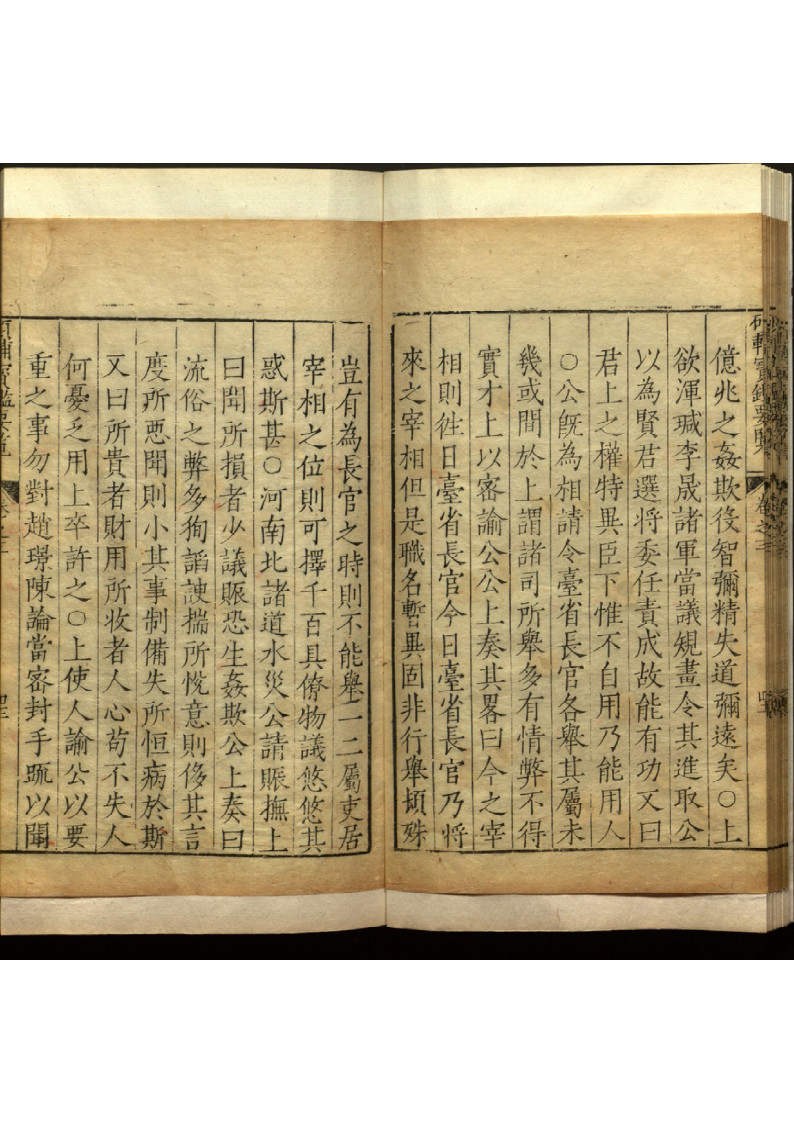 億兆之姦欺役智彌精失道彌遠矣○上
欲渾瑊李晟諸軍當議規畫令其進取公
以為賢君選將委任責成故能有功又曰
君上之權特異臣下惟不自用乃能用人
○公旣為相請令臺省長官各舉其屬未
幾或間於上謂諸司所舉多有情弊不得
實才上以審諭公公上奏其畧曰今之宰
相則徃日臺省長官今日臺省長官乃將
來之宰相但是職名暫異固非行舉頓殊
豈有為長官之時則不能舉一二屬吏居
宰相之位則可擇千百具僚物議悠悠其
惑斯甚○河南北諸道水災公請賑撫上
曰聞所損者少議賑恐生姦欺公上奏曰
流俗之弊多狥謟諛揣所恱意則侈其言
度所惡聞則小其事制備失所恒病於斯
又曰所貴者財用所收者人心茍不失人
何憂乏用上卒許之○上使人諭公以要
重之事勿對趙璟陳論當密封手䟽以聞